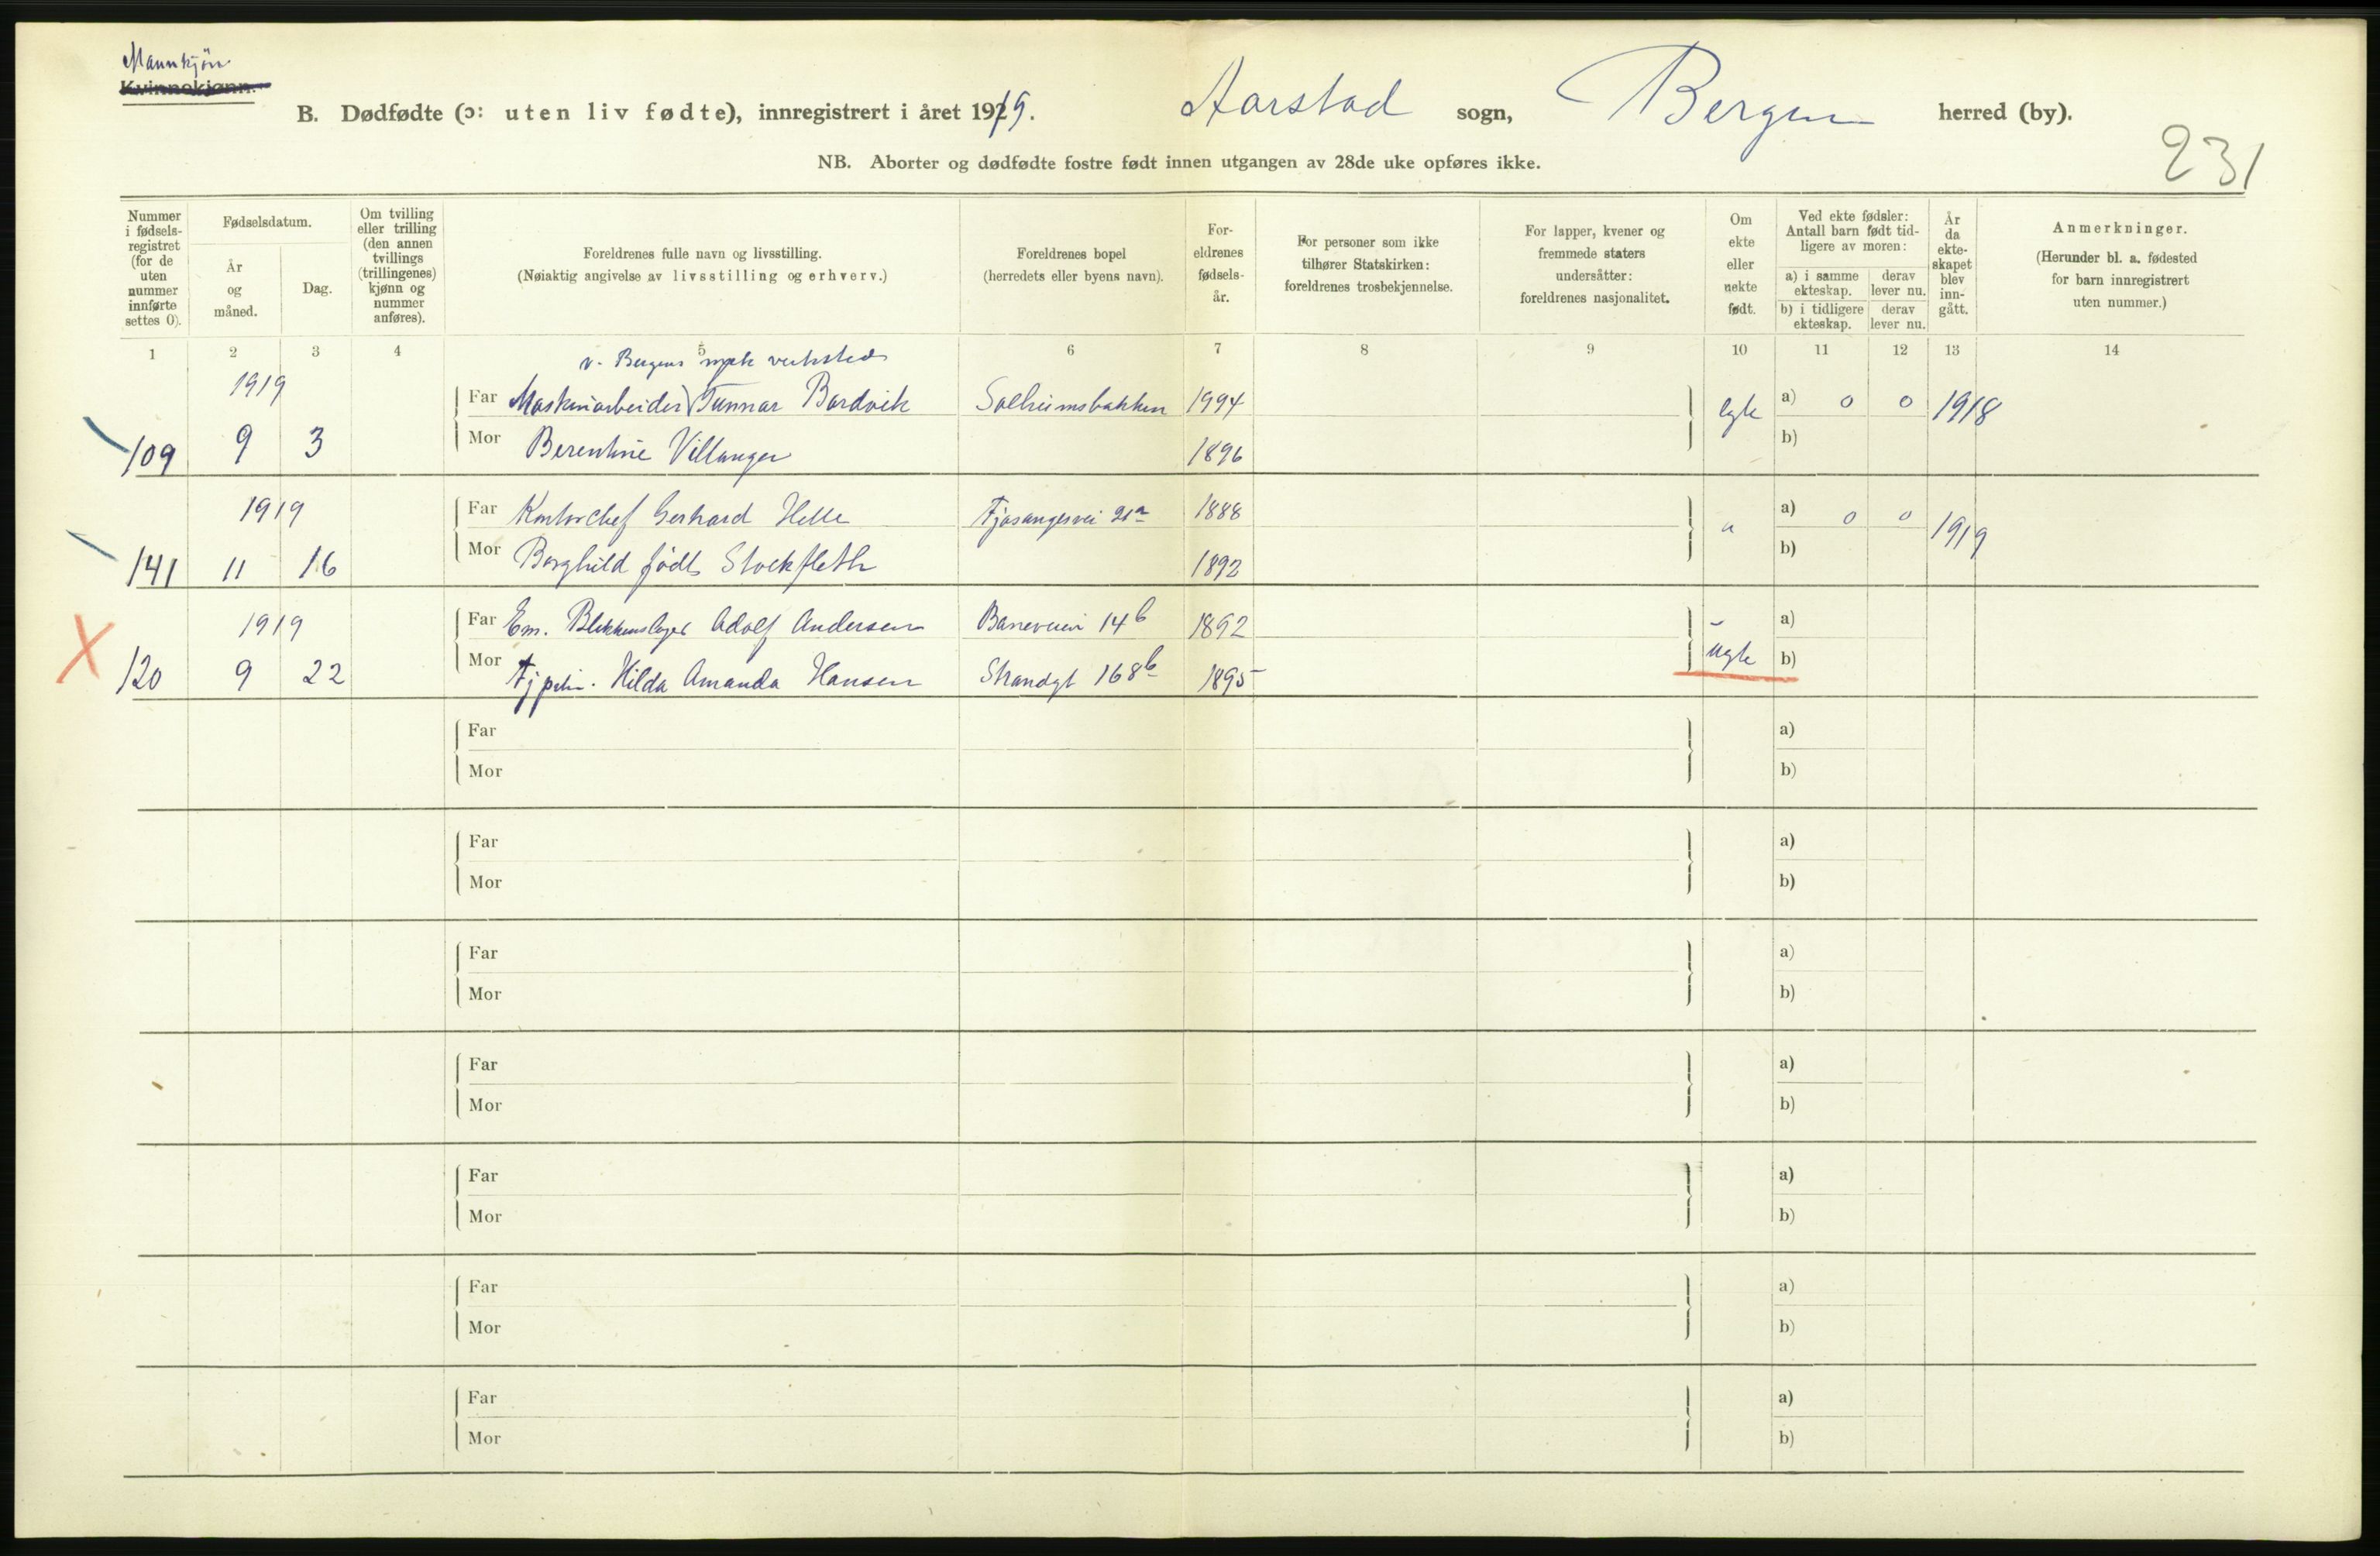 Mannkjön
Kvinnekjønn.
B. Dødfødte (ɔ: uten liv fødte), innregistrert i året 1919. Aarstad sogn, Bergen herred (by).
NB. Aborter og dødfødte fostre født innen utgangen av 28de uke opføres ikke.
231
Nummer i fødsels-registret (for de uten nummer innførte settes 0).
Fødselsdatum.
År og måned.
Dag.
Om tvilling eller trilling (den annen tvillings (trillingenes) kjønn og nummer anføres).
Foreldrenes fulle navn og livsstilling.
(Nøiaktig angivelse av livsstilling og erhverv.)
Foreldrenes bopel
(herredets eller byens navn).
For-eldrenes fødsels-år.
For personer som ikke tilhører Statskirken: foreldrenes trosbekjennelse.
For lapper, kvener og fremmede staters undersåtter: foreldrenes nasjonalitet.
Om ekte eller uekte født.
Ved ekte fødsler: Antall barn født tid-ligere av moren:
a) i samme ekteskap.
derav lever nu.
b) i tidligere ekteskap.
derav lever nu.
År da ekte-skapet blev inn-gått.
Anmerkninger.
(Herunder bl. a. fødested for barn innregistrert uten nummer.)
1 2 3 4 5 6 7 8 9 10 11 12 13 14
v. Bergens mek verksted
1919 Far Maskinarbeider Gunnar Bardvik Solheimsbakken 1994 egte a) 0 0 1918
109 9 3 Mor Berentine Villanger 1896 b)
1919 Far Kontorchef Gerhard Helle Fjøsangervei 21a 1888 " a) 0 0 1919
141 11 16 Mor Borghild födt Stockfleth 1892 b)
1919 Far Em. Blikkenslager Adolf Andersen Baneveien 14b 1892 a)
X 120 9 22 Mor Hilda Amanda Hansen Strandgt 168b 1895 uegte b)
Far a)
Mor b)
Far a)
Mor b)
Far a)
Mor b)
Far a)
Mor b)
Far a)
Mor b)
Far a)
Mor b)
Far a)
Mor b)